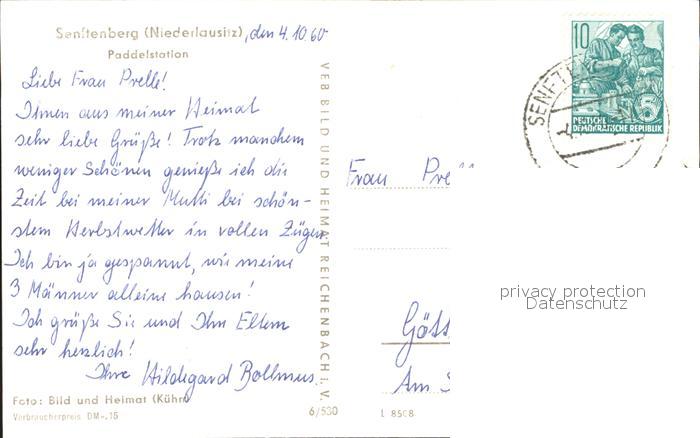 Senftenberg (Niederlausitz), den 4.10.60
Paddelstation
Liebe Frau Prelle!
Ihnen aus meiner Heimat
sehr liebe Grüße! Trotz manchem
weniger Schönen genieße ich die
Zeit bei meiner Mutti bei schön-
stem Herbstwetter in vollen Zügen.
Ich bin ja gespannt, wie meine
3 Männer alleine hausen!
Ich grüße Sie und Ihre Eltern
sehr herzlich!
Ihre Hildegard Bollmus.
Foto: Bild und Heimat (Kühn)
Verbraucherpreis DM -.15
VEB BILD UND HEIMAT REICHENBACH i. V.
6/530
L 8508
10
5
DEUTSCHE
DEMOKRATISCHE REPUBLIK
SENFTE
Frau Prell
Gött
Am
privacy protection
Datenschutz